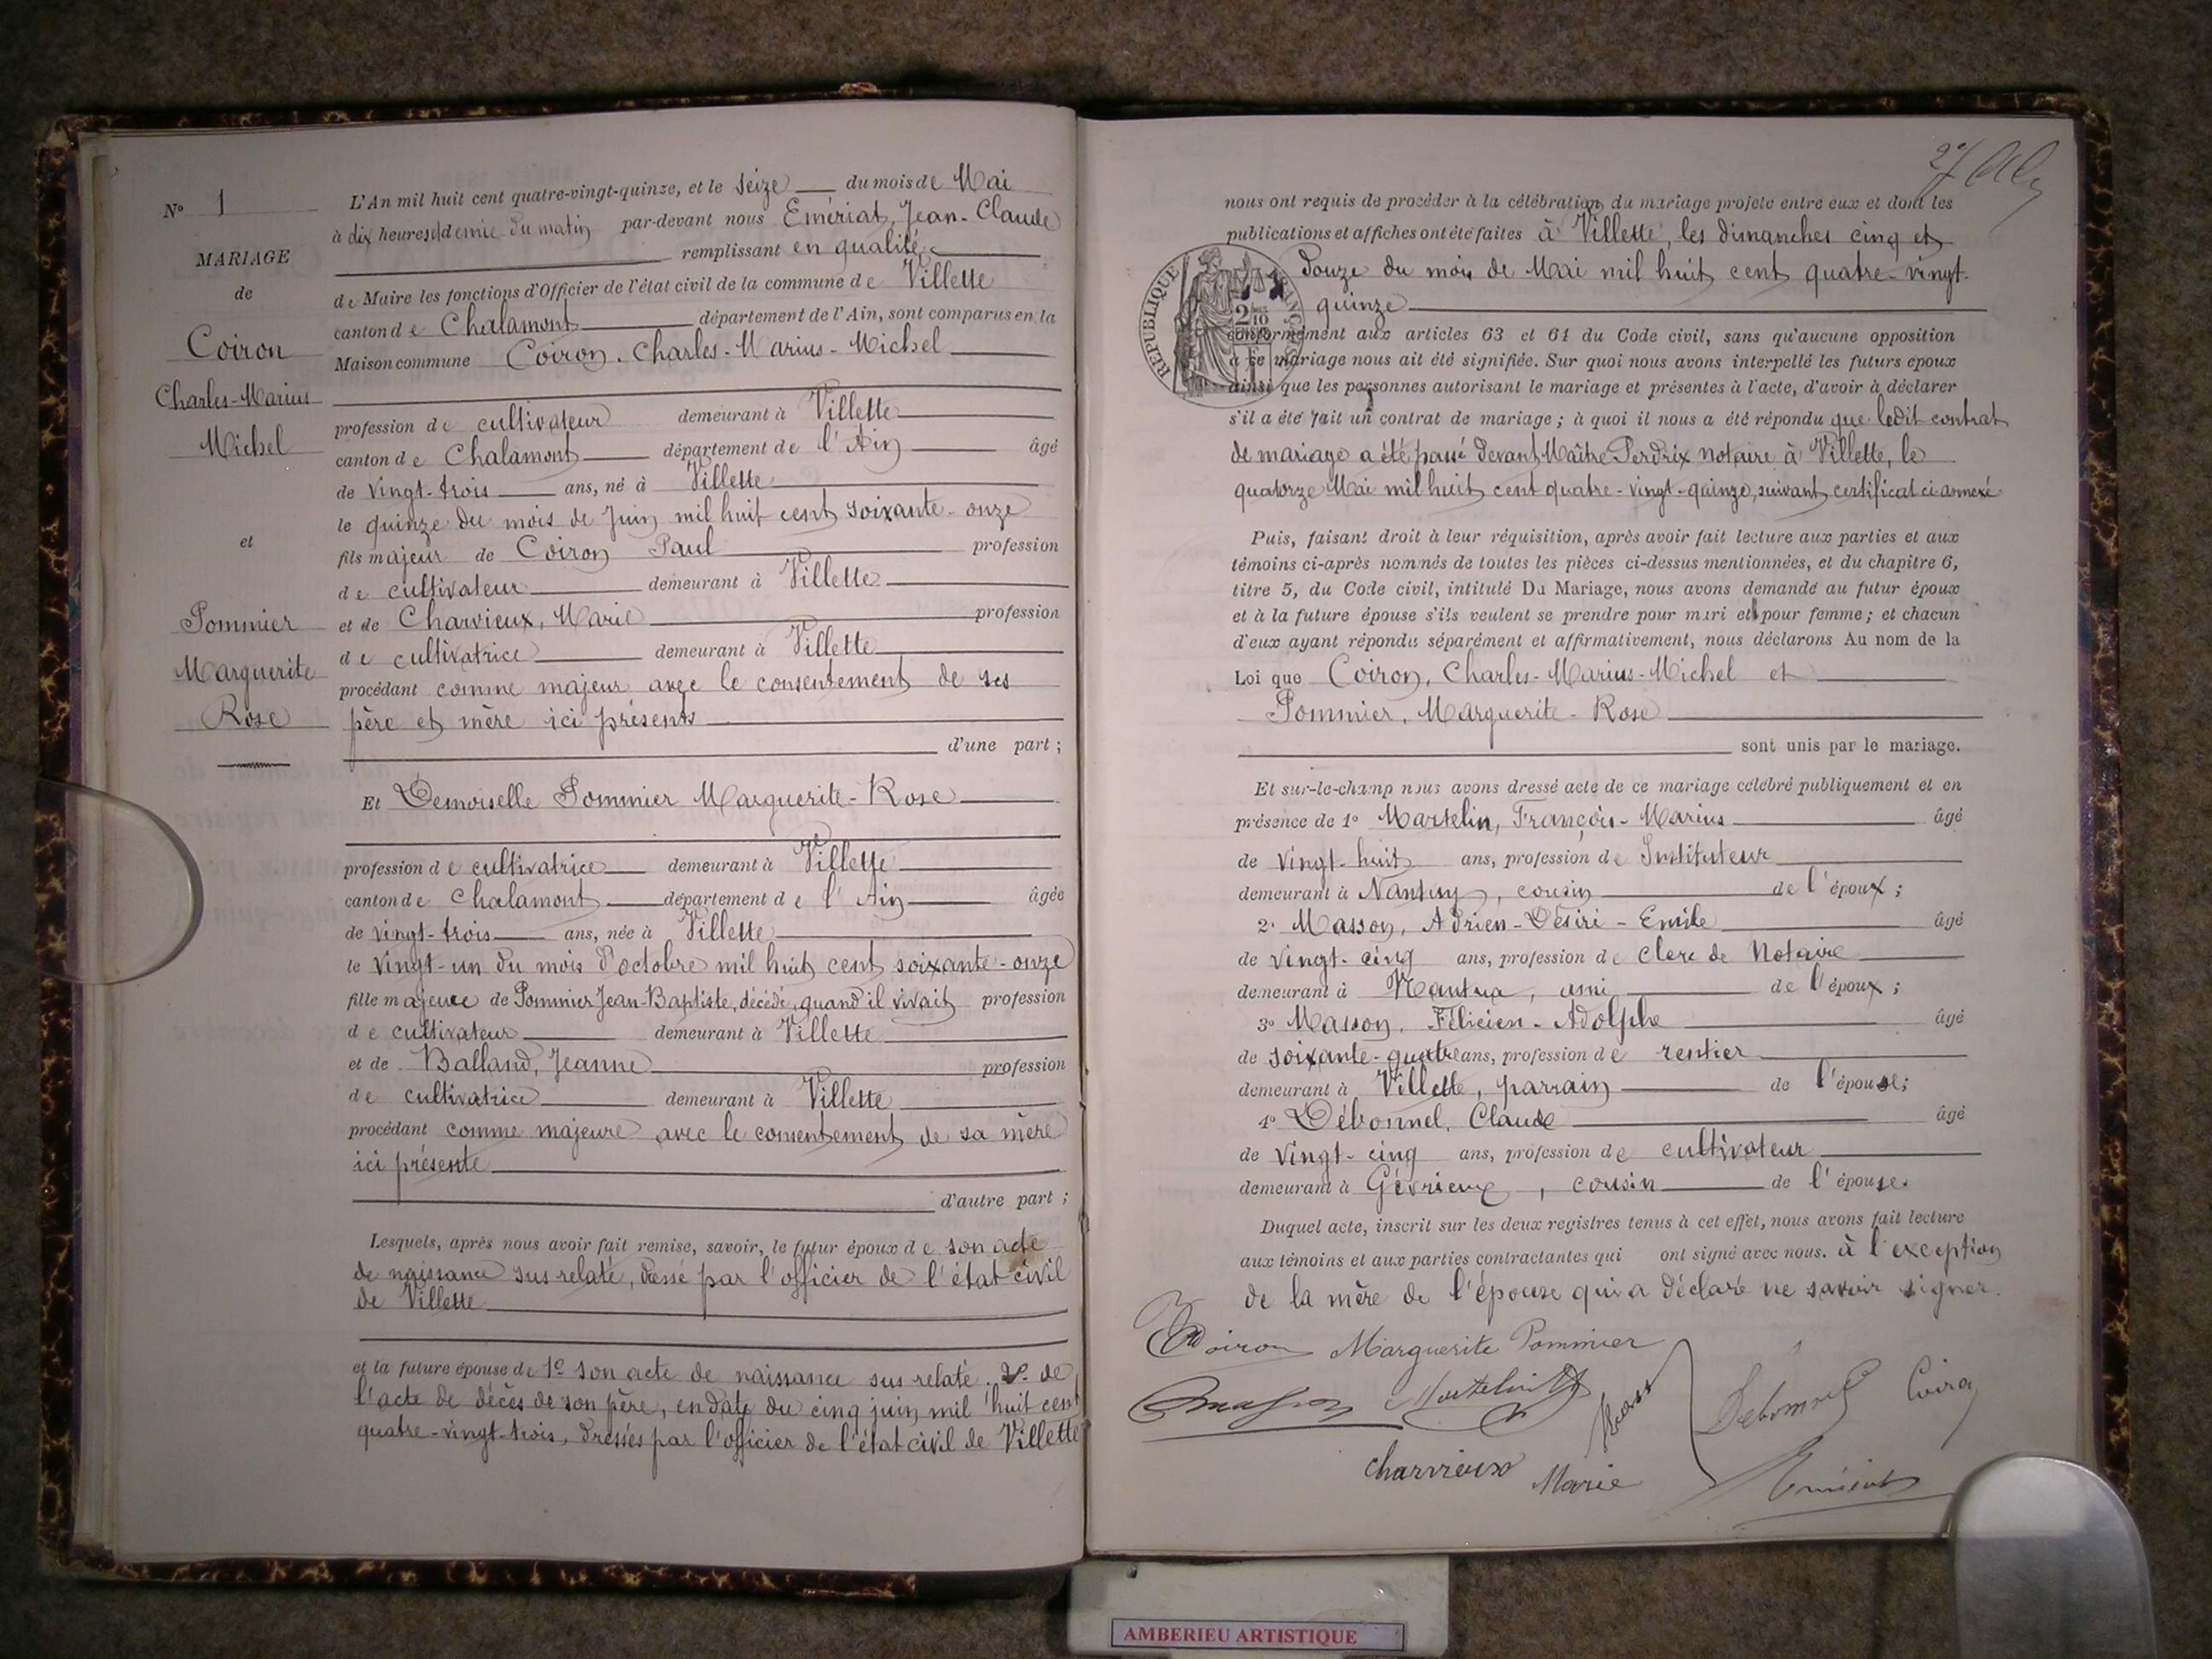 N° 1
MARIAGE
de
Coiron
Charles-Marius
Michel
et
Pommier
Marguerite
Rose
L'An mil huit cent quatre-vingt-quinze, et le seize du mois de Mai
à dix heures et demie du matin par-devant nous Emériat, Jean-Claude
remplissant en qualité
de Maire les fonctions d'Officier de l'état civil de la commune de Villette
canton de Chalamont département de l'Ain, sont comparus en la
Maison commune Coiron, Charles-Marius-Michel
profession de cultivateur demeurant à Villette
canton de Chalamont département de l'Ain âgé
de vingt-trois ans, né à Villette
le quinze du mois de Juin mil huit cent soixante-onze
fils majeur de Coiron Paul profession
de cultivateur demeurant à Villette
et de Charvieux, Marie profession
de cultivatrice demeurant à Villette
procédant comme majeur avec le consentement de ses
père et mère ici présents
d'une part ;
Et Demoiselle Pommier Marguerite-Rose
profession de cultivatrice demeurant à Villette
canton de Chalamont département de l'Ain âgée
de vingt-trois ans, née à Villette
le vingt-un du mois d'octobre mil huit cent soixante-onze
fille majeure de Pommier Jean-Baptiste, décédé, quand il vivait profession
de cultivateur demeurant à Villette
et de Balland, Jeanne profession
de cultivatrice demeurant à Villette
procédant comme majeure avec le consentement de sa mère
ici présente
d'autre part ;
Lesquels, après nous avoir fait remise, savoir, le futur époux de son acte
de naissance sus relaté, dressé par l'officier de l'état civil
de Villette
et la future épouse de 1° son acte de naissance sus relaté. 2° de
l'acte de décès de son père, en date du cinq juin mil huit cent
quatre-vingt-trois, dressés par l'officier de l'état civil de Villette
nous ont requis de procéder à la célébration du mariage projeté entre eux et dont les
publications et affiches ont été faites à Villette, les dimanches cinq et
douze du mois de Mai mil huit cent quatre-vingt-
quinze
REPUBLIQUE FRANÇAISE
conformément aux articles 63 et 64 du Code civil, sans qu'aucune opposition
à ce mariage nous ait été signifiée. Sur quoi nous avons interpellé les futurs époux
ainsi que les personnes autorisant le mariage et présentes à l'acte, d'avoir à déclarer
s'il a été fait un contrat de mariage ; à quoi il nous a été répondu que ledit contrat
de mariage a été passé devant Maître Perdrix notaire à Villette, le
quatorze Mai mil huit cent quatre-vingt-quinze, suivant certificat ci-annexé
Puis, faisant droit à leur réquisition, après avoir fait lecture aux parties et aux
témoins ci-après nommés de toutes les pièces ci-dessus mentionnées, et du chapitre 6,
titre 5, du Code civil, intitulé Du Mariage, nous avons demandé au futur époux
et à la future épouse s'ils veulent se prendre pour mari et pour femme ; et chacun
d'eux ayant répondu séparément et affirmativement, nous déclarons Au nom de la
Loi que Coiron, Charles-Marius-Michel et
Pommier, Marguerite-Rose
sont unis par le mariage.
Et sur-le-champ nous avons dressé acte de ce mariage célébré publiquement et en
présence de 1° Martelin, François-Marius âgé
de vingt-huit ans, profession de Instituteur
demeurant à Nantuy, cousin de l'époux ;
2° Masson, Adrien-Désiré-Emile âgé
de vingt-cinq ans, profession de Clerc de Notaire
demeurant à Nantua, ami de l'époux ;
3° Masson, Félicien-Adolphe âgé
de soixante-quatre ans, profession de rentier
demeurant à Villette, parrain de l'épouse ;
4° Débonnel, Claude âgé
de vingt-cinq ans, profession de cultivateur
demeurant à Gévrieux, cousin de l'épouse.
Duquel acte, inscrit sur les deux registres tenus à cet effet, nous avons fait lecture
aux témoins et aux parties contractantes qui ont signé avec nous. à l'exception
de la mère de l'épouse qui a déclaré ne savoir signer.
Coiron Marguerite Pommier
Masson Martelin Debonnel Coiron
charvieux Marie Emériat
AMBERIEU ARTISTIQUE